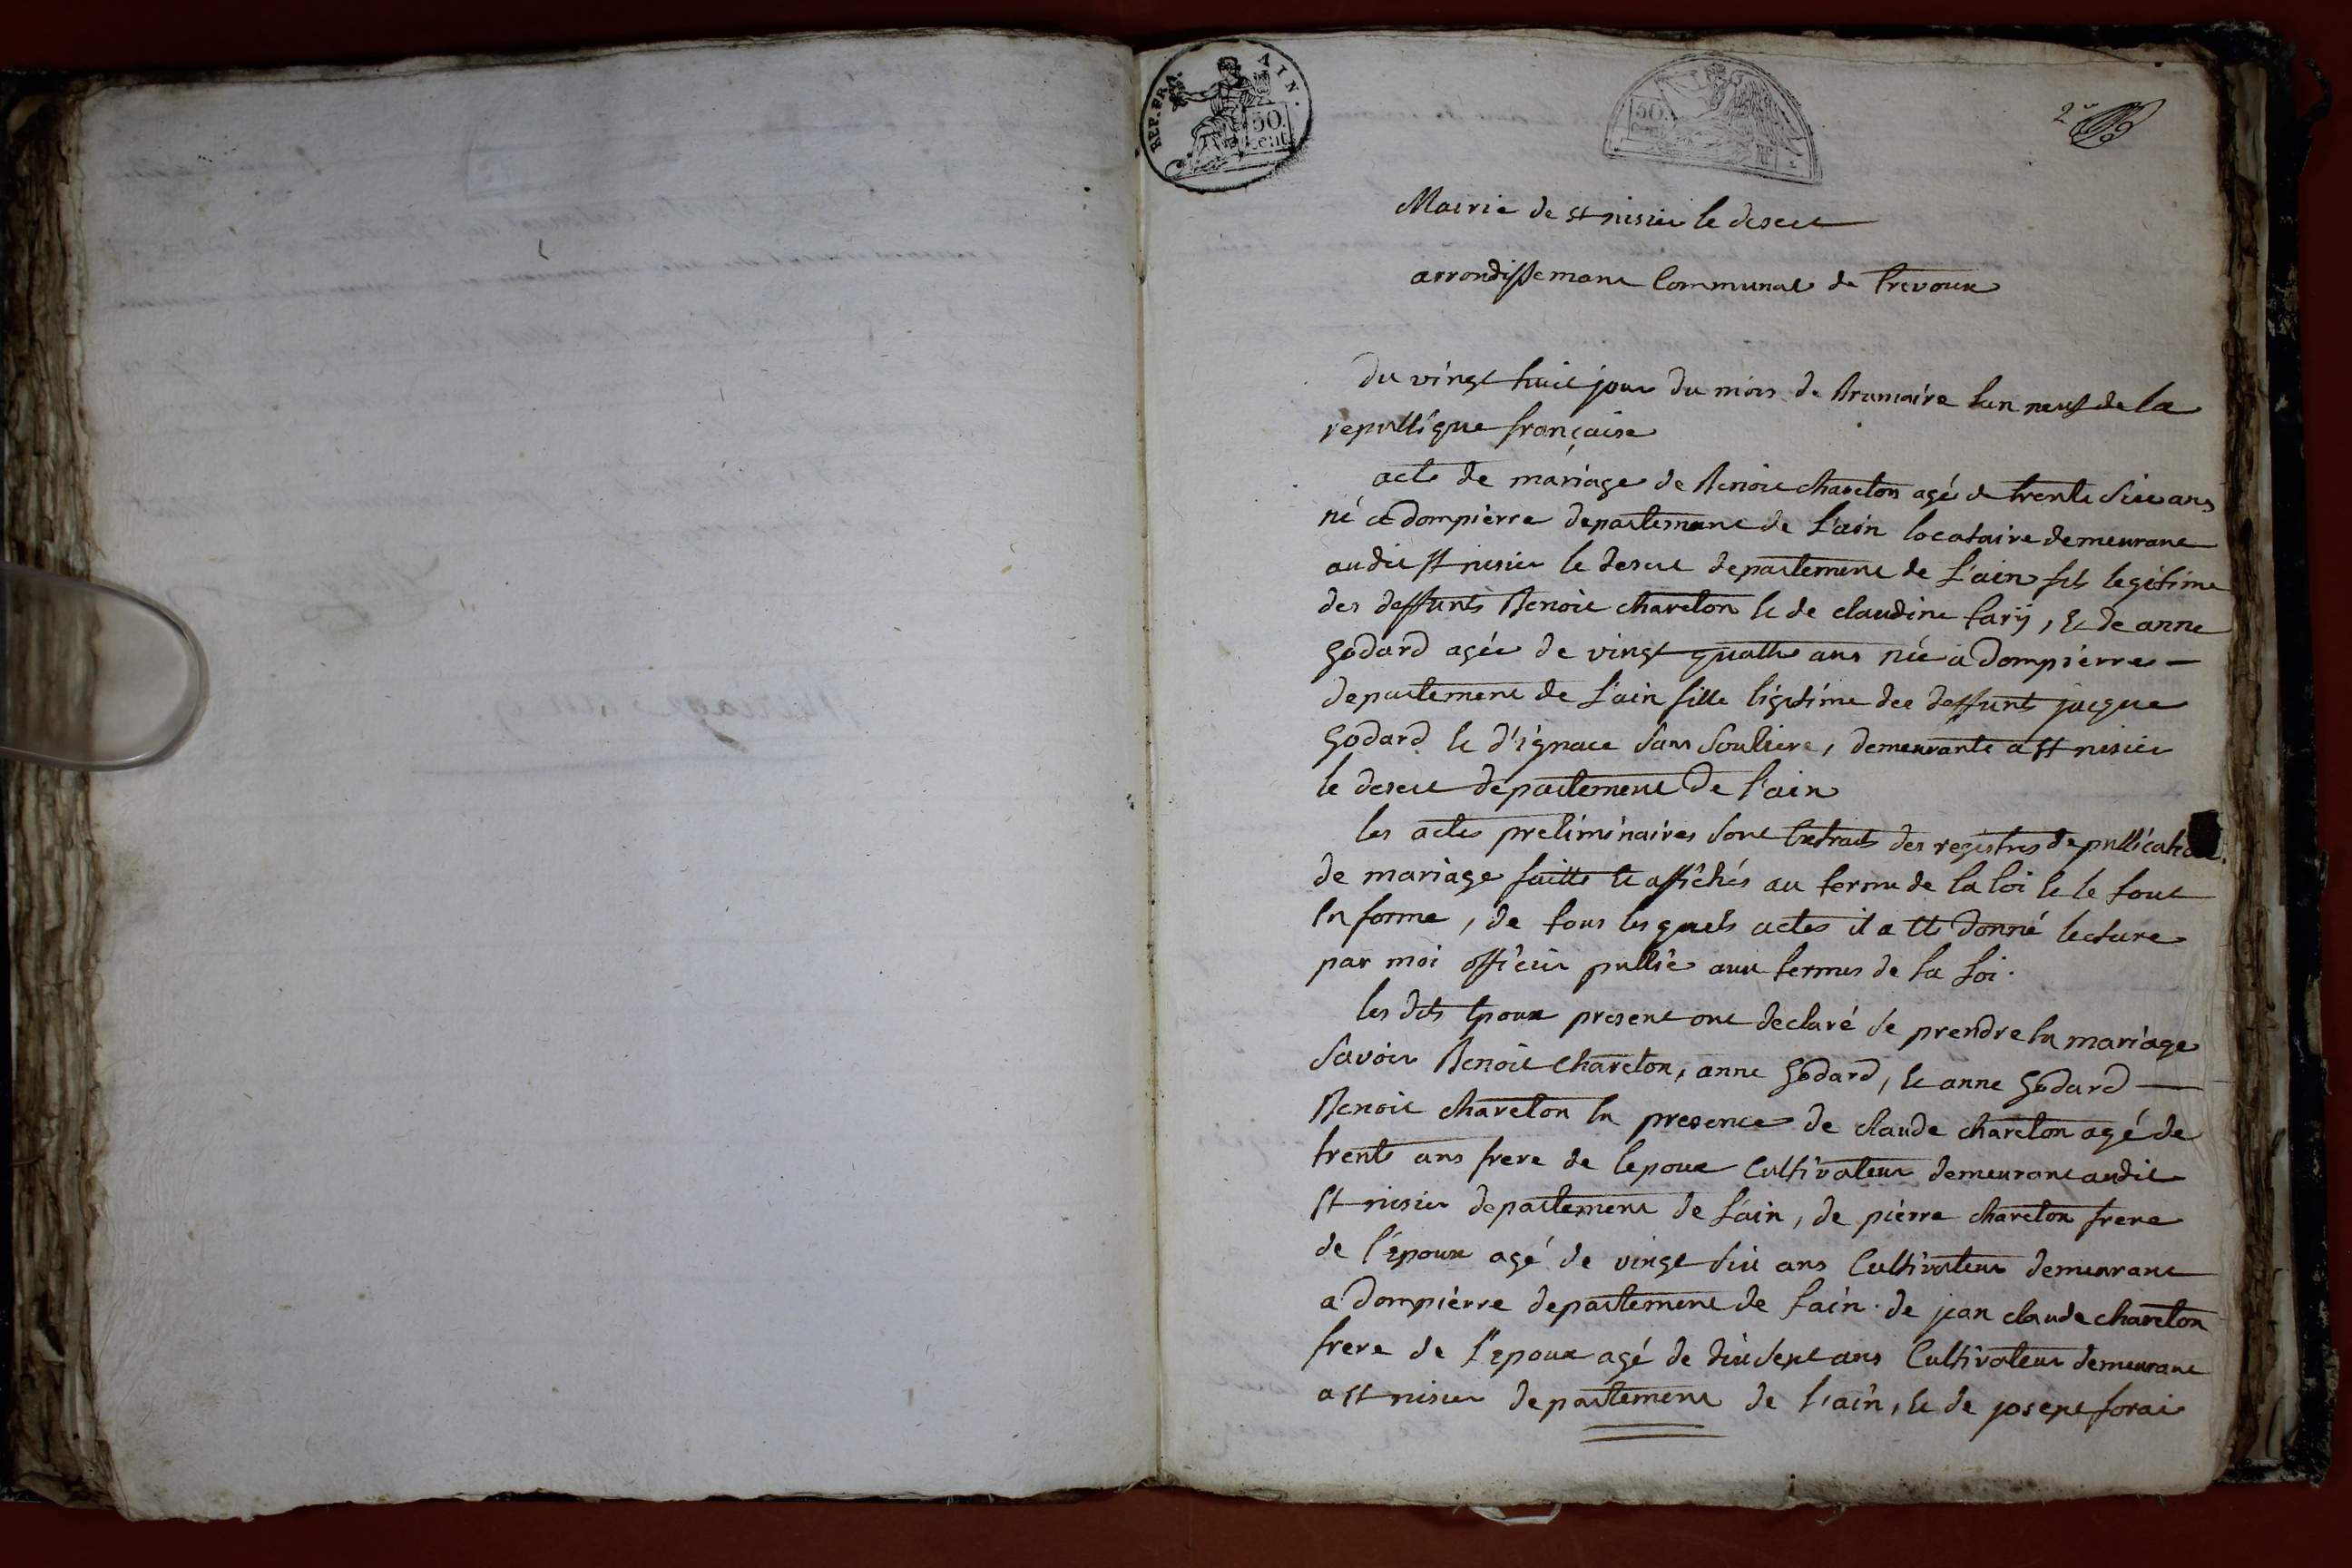 REP. FRA. AIN.
50.
cent
50.
2e
Mairie de st nisier le desert
arrondissement Communal de trevoux
du vingt huit jour du mois de Brumaire l'an neuf de la
republique française
acte de mariage de Benoit chareton agé de trente six ans
né a dompierre departement de L'ain locataire demeurant
audit st nisier le desert departement de L'ain fils legitime
des deffunts Benoit chareton et de claudine fary, et de anne
Godard agée de vingt quatre ans née a dompierre —
departement de L'ain fille légitime des deffunts jacque
Godard et d'ignace Sans Souliere, demeurante a st nisier
le desert departement de l'ain
les actes preliminaires sont Extraits des registres de publication
de mariage faitte et affichés au terme de la loi et le tout
En forme, de tous lesquels actes il a été donné lecture
par moi officier public aux termes de la Loi.
les dits Epoux present ont declaré se prendre En mariage
Savoir Benoit Chareton, anne Godard, et anne Godard —
Benoit chareton En presence de claude chareton agé de
trente ans frere de lepoux Cultivateur demeurant audit
st nisier departement de L'ain, de pierre chareton frere
de l'Epoux agé de vingt six ans Cultivateur demeurant
a dompierre departement de l'ain. de jean claude chareton
frere de L'Epoux agé de dix sept ans Cultivateur demeurant
a st nisier departement de l'ain, et de josept forai